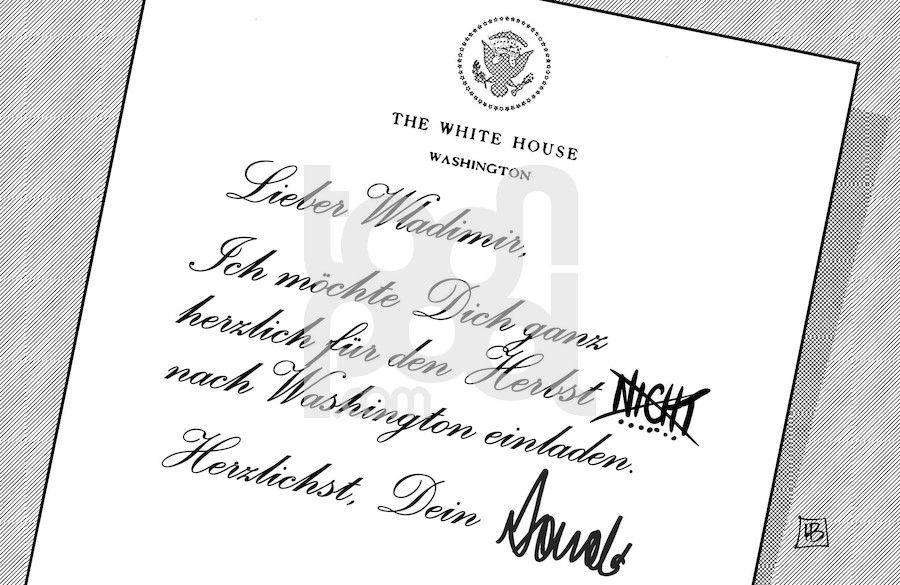 THE WHITE HOUSE
WASHINGTON
Lieber Wladimir,
Ich möchte Dich ganz
herzlich für den Herbst NICHT
nach Washington einladen.
Herzlichst, Dein Donald
toonpool.com
HB